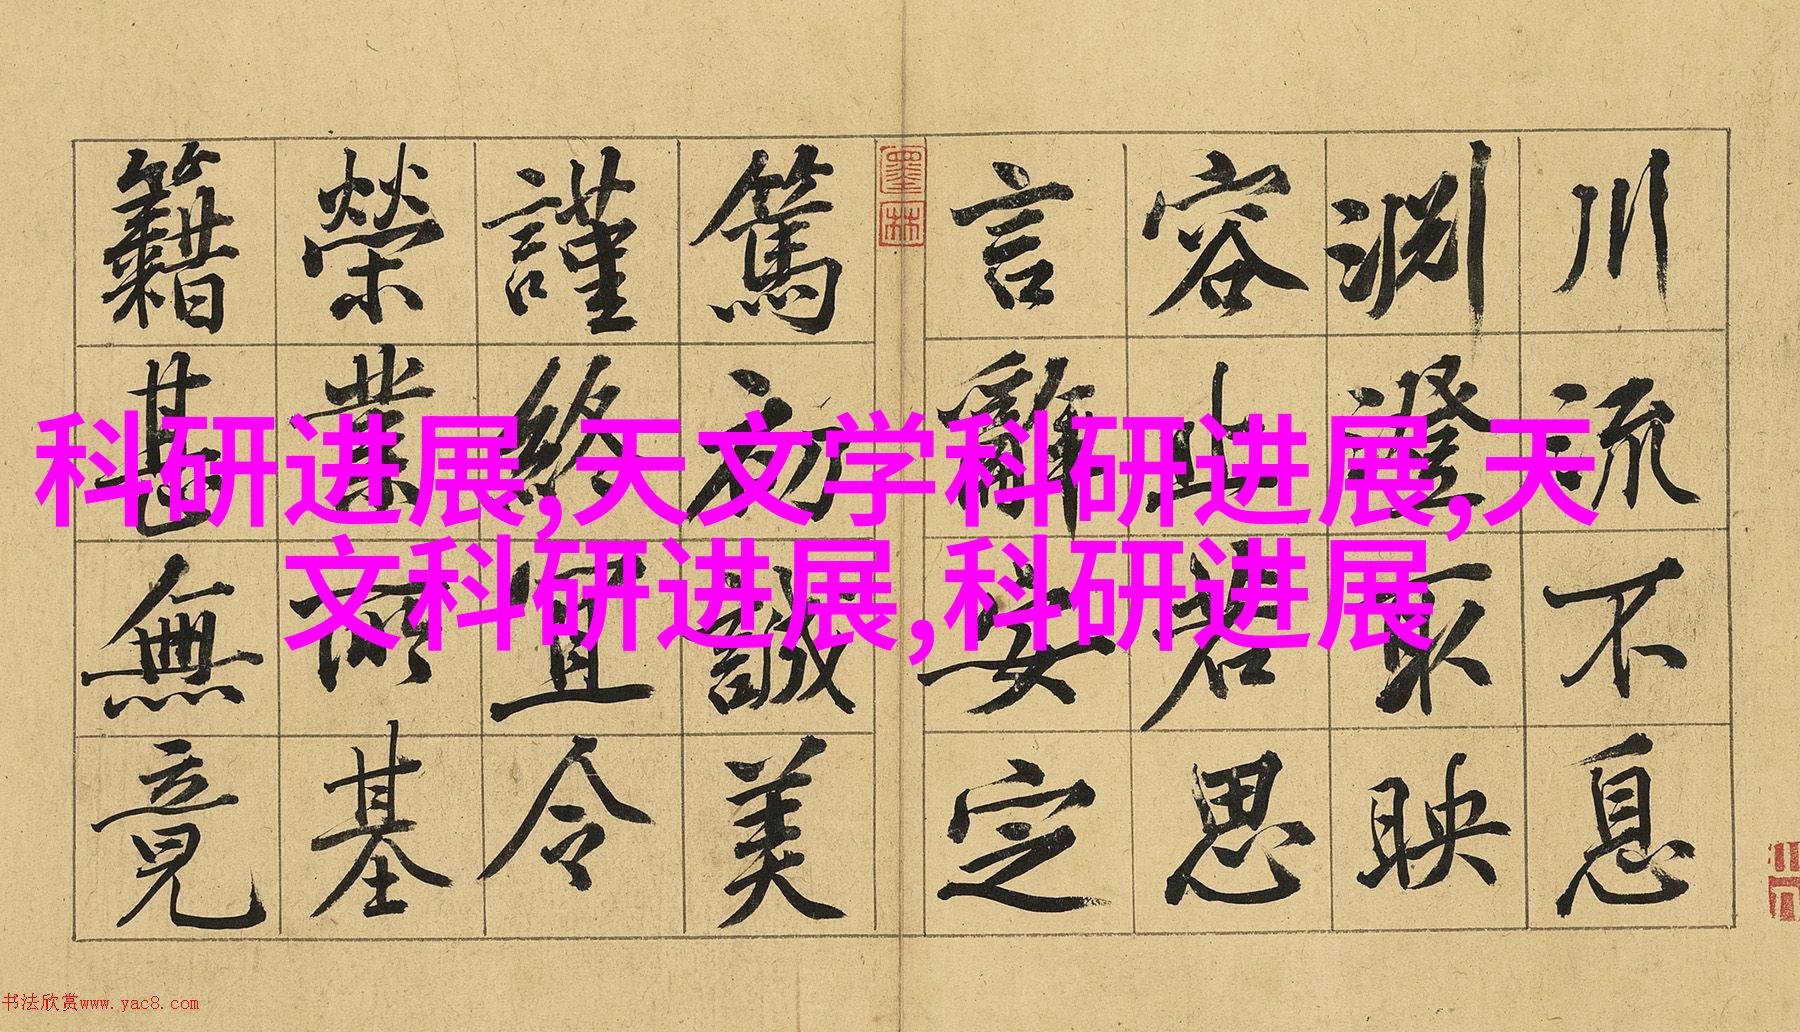 科研进展,天文学科研进展,天
文科研进展,科研进展
川流不息
淵澄取映
容止若思
言辭安定
墨林
篤初誠美
謹終宜令
榮業所基
籍甚無竟
书法欣赏www.yac8.com